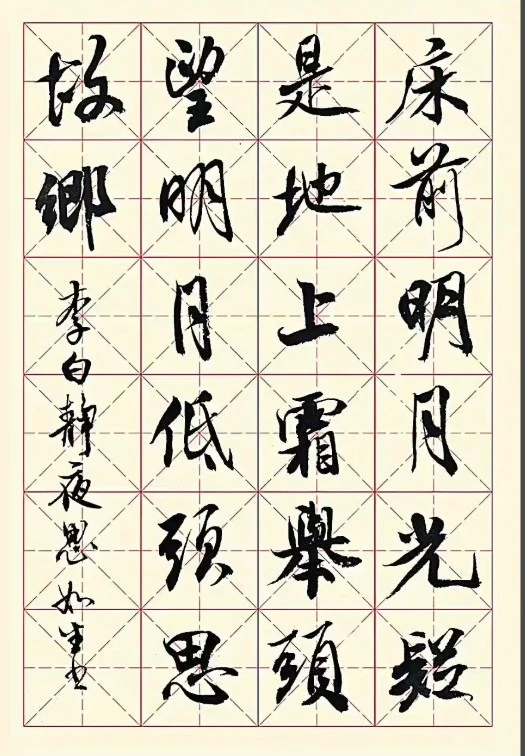 床前明月光疑
是地上霜舉頭
望明月低頭思
故鄉
李白靜夜思如生书